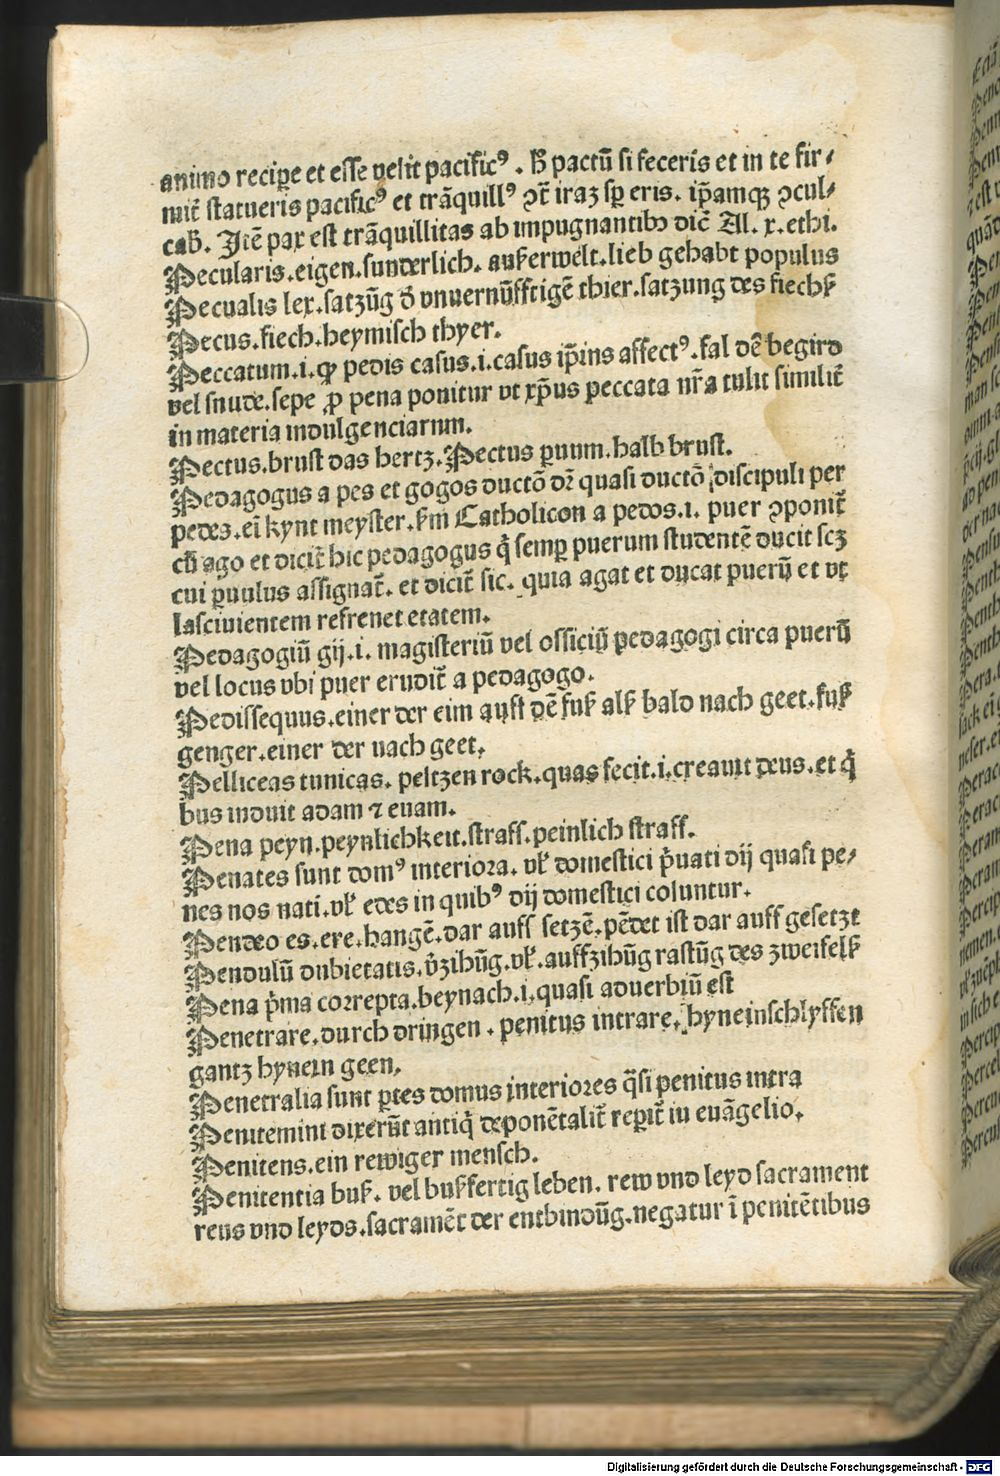 animo recipe et esse velit pacific⁹ . H̄ pactū si feceris et in te fir⸗
mit̄ statueris pacific⁹ et trāquill⁹ ↄt̄ iraꝫ sꝑ eris. ip̄amqꝫ ↄcul⸗
cab̄. Itē pax est trāquillitas ab impugnantibꝰ dic̄ Al. x. ethi.
Pecularis.eigen.sunderlich. außerwelt.lieb gehabt populus
Pecualis lex.satzūg d̄ vnuernūfftigē thier.satzung des fiechß
Pecus.fiech.heymisch thyer.
Peccatum.i.ꝙ pedis casus.i.casus ip̄ius affect⁹.fal dē begird
vel snude.sepe ꝓ pena ponitur vt xp̄us peccata nr̄a tulit similit̄
in materia indulgenciarum.
Pectus.brust das hertz.Pectus ꝑuum.halb brust.
Pedagogus a pes et gogos ductō dr̄ quasi ductō discipuli per
pedes.ei kynt meyster.ẜm Catholicon a pedos.i. puer ↄponit̄
cū ago et dicit̄ hic pedagogus q̄ semꝑ puerum studentē ducit scꝫ
cui ꝑuulus assignat̄. et dicit̄ sic. quia agat et ducat puerū et vt
lasciuientem refrenet etatem.
Pedagogiū gij.i. magisteriū vel officiū pedagogi circa puerū
vel locus vbi puer erudit̄ a pedagogo.
Pedissequus.einer der eim auff dē fuß alß bald nach geet.fuß
genger.einer der nach geet.
Pelliceas tunicas. peltzen rock.quas fecit.i.creauit deus.et q̄
bus induit adam ⁊ euam.
Pena peyn.peynlichkeit.straff.peinlich straff.
Penates sunt dom⁹ interiora. vł domestici p̄uati dij quasi pe⸗
nes nos nati.vł edes in quib⁹ dij domestici coluntur.
Pendeo es.ere.hangē.dar auff setzē.pēdet ist dar auff gesetzt
Pendulū dubietatis.v̄zihūg.vł.auffzihūg rastūg des zweifelß
Pena p̄ma correpta.beynach.i.quasi aduerbiū est
Penetrare.durch dringen . penitus intrare. hyneinschlyffen
gantz hynein geen.
Penetralia sunt ꝑtes domus interiores q̄si penitus intra
Penitemini dixerūt antiq̄ deponētalit̄ reꝑit̄ in euāgelio.
Penitens.ein rewiger mensch.
Penitentia buß. vel bußfertig leben. rew vnd leyd sacrament
reus vnd leyds.sacramēt der entbindūg.negatur ī penitētibus
Digitalisierung gefördert durch die Deutsche Forschungsgemeinschaft - DFG